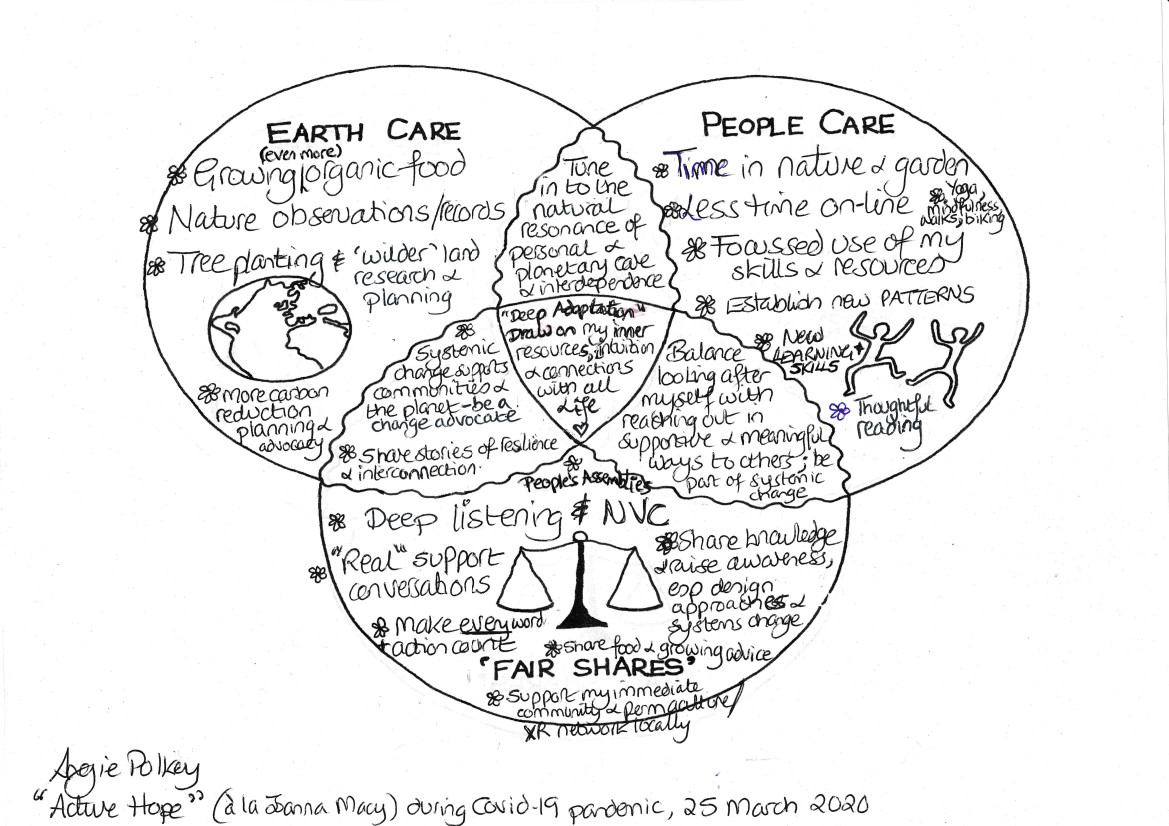 EARTH CARE
(even more)
Growing organic food
Nature observations/records
Tree planting & 'wilder' land
research &
planning
more carbon
reduction
planning &
advocacy
PEOPLE CARE
Time in nature & garden
Less time on-line
Yoga,
mindfulness,
walks, biking
Focussed use of my
skills & resources
Establish new PATTERNS
NEW
LEARNING +
SKILLS
Thoughtful
reading
Tune
in to the
natural
resonance of
personal &
planetary care
& interdependence
"Deep Adaptation"
Draw on my inner
resources, intuition
& connections
with all
Life
Systemic
change supports
communities &
the planet - be a
change advocate
Share stories of resilience
& interconnection.
Balance
looking after
myself with
reaching out in
supportive & meaningful
ways to others; be
part of systemic
change
People's Assemblies
Deep listening & NVC
"Real" support
conversations
Make every word
+ action count
Share knowledge
& raise awareness,
esp design
approaches &
systems change
Share food & growing advice
"FAIR SHARES"
Support my immediate
community & permaculture/
XR network locally
Angie Polkey
"Active Hope" (à la Joanna Macy) during Covid-19 pandemic, 25 March 2020